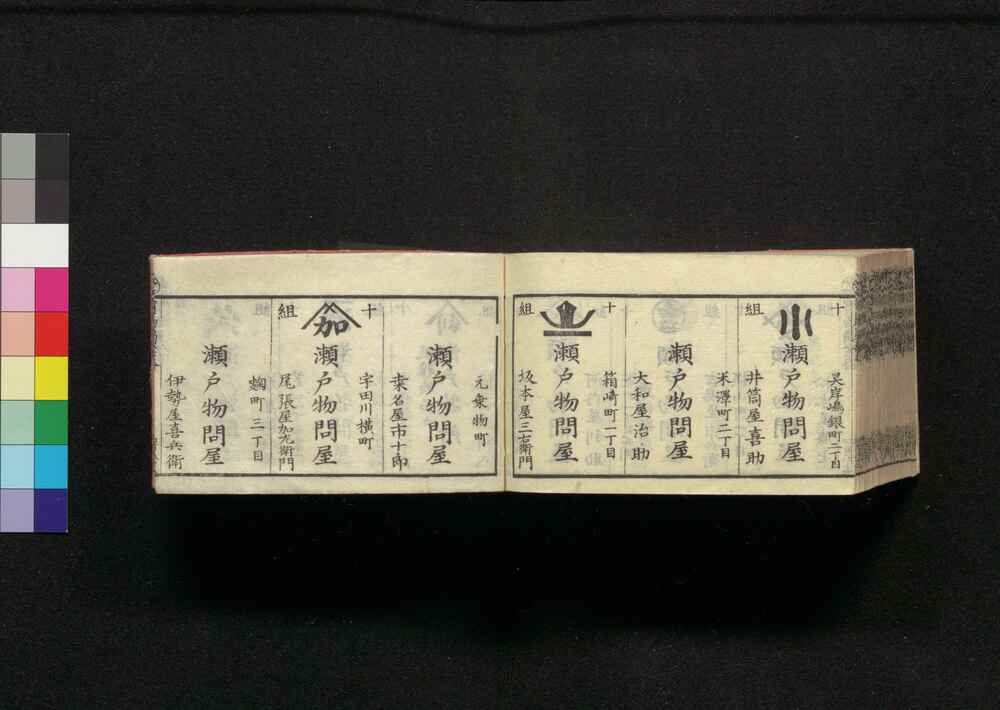 十組
呉岸嶋銀町二丁目
瀬戸物問屋
井筒屋喜助
米澤町二丁目
瀬戸物問屋
大和屋治助
十組
箱崎町一丁目
瀬戸物問屋
坂本屋三右衛門
元乗物町
瀬戸物問屋
桒名屋市十郎
十組
加
宇田川横町
瀬戸物問屋
尾張屋加右衛門
麹町三丁目
瀬戸物問屋
伊勢屋喜兵衛